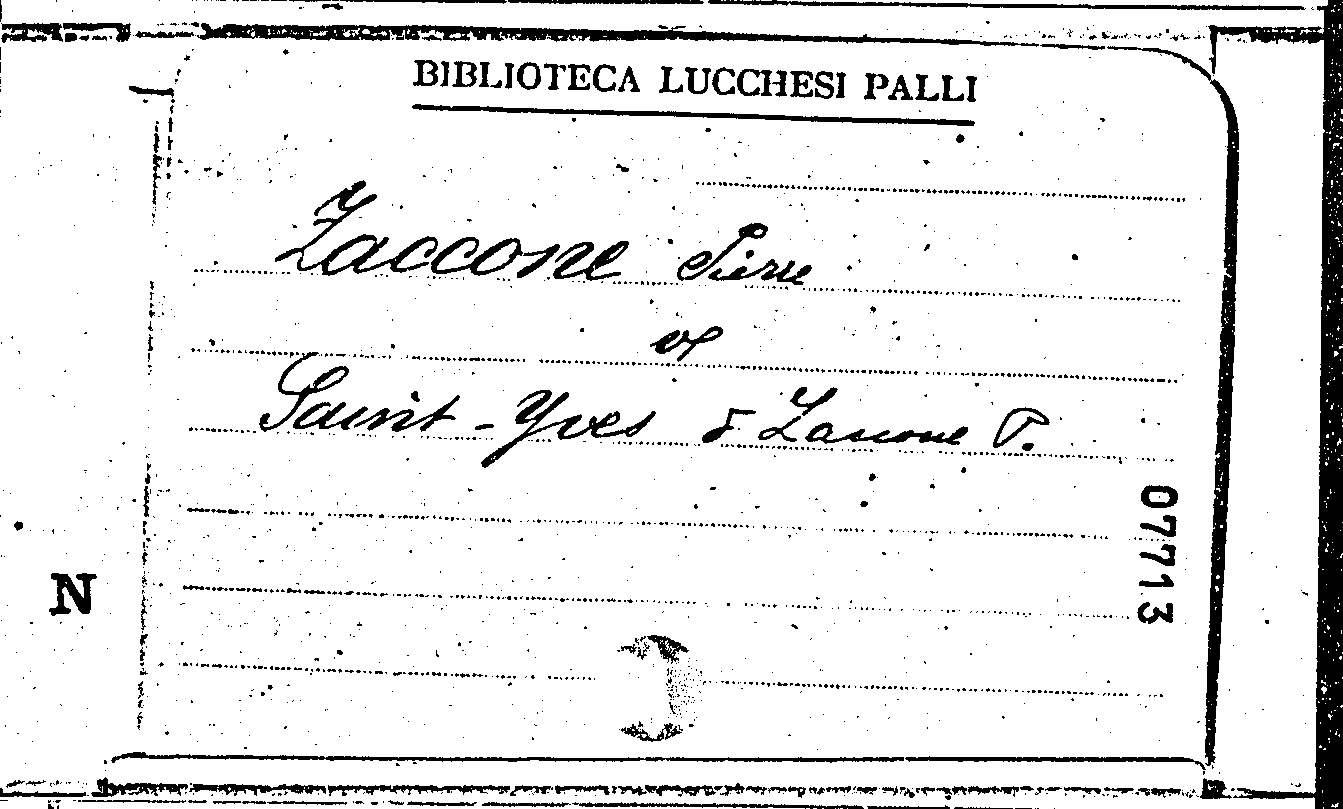 BIBLIOTECA LUCCHESI PALLI
Zaccone Pierre
Saint-Yves & Zaccone P.
07713
N